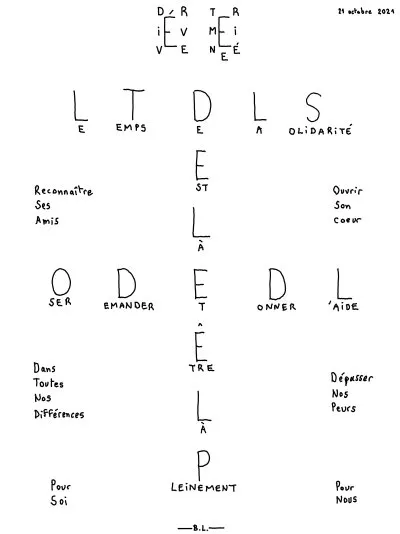 D É R T R
i E V M E i
V E N E É
21 octobre 2021
LE TEMPS DE LA SOLiDARiTÉ
EST
Reconnaître
Ses
Amis
Ouvrir
Son
coeur
LÀ
OSER DEMANDER ET DONNER L'AiDE
ÊTRE
Dans
Toutes
Nos
Différences
Dépasser
Nos
Peurs
LÀ
PLEiNEMENT
Pour
Soi
Pour
NOUS
—B.L.—